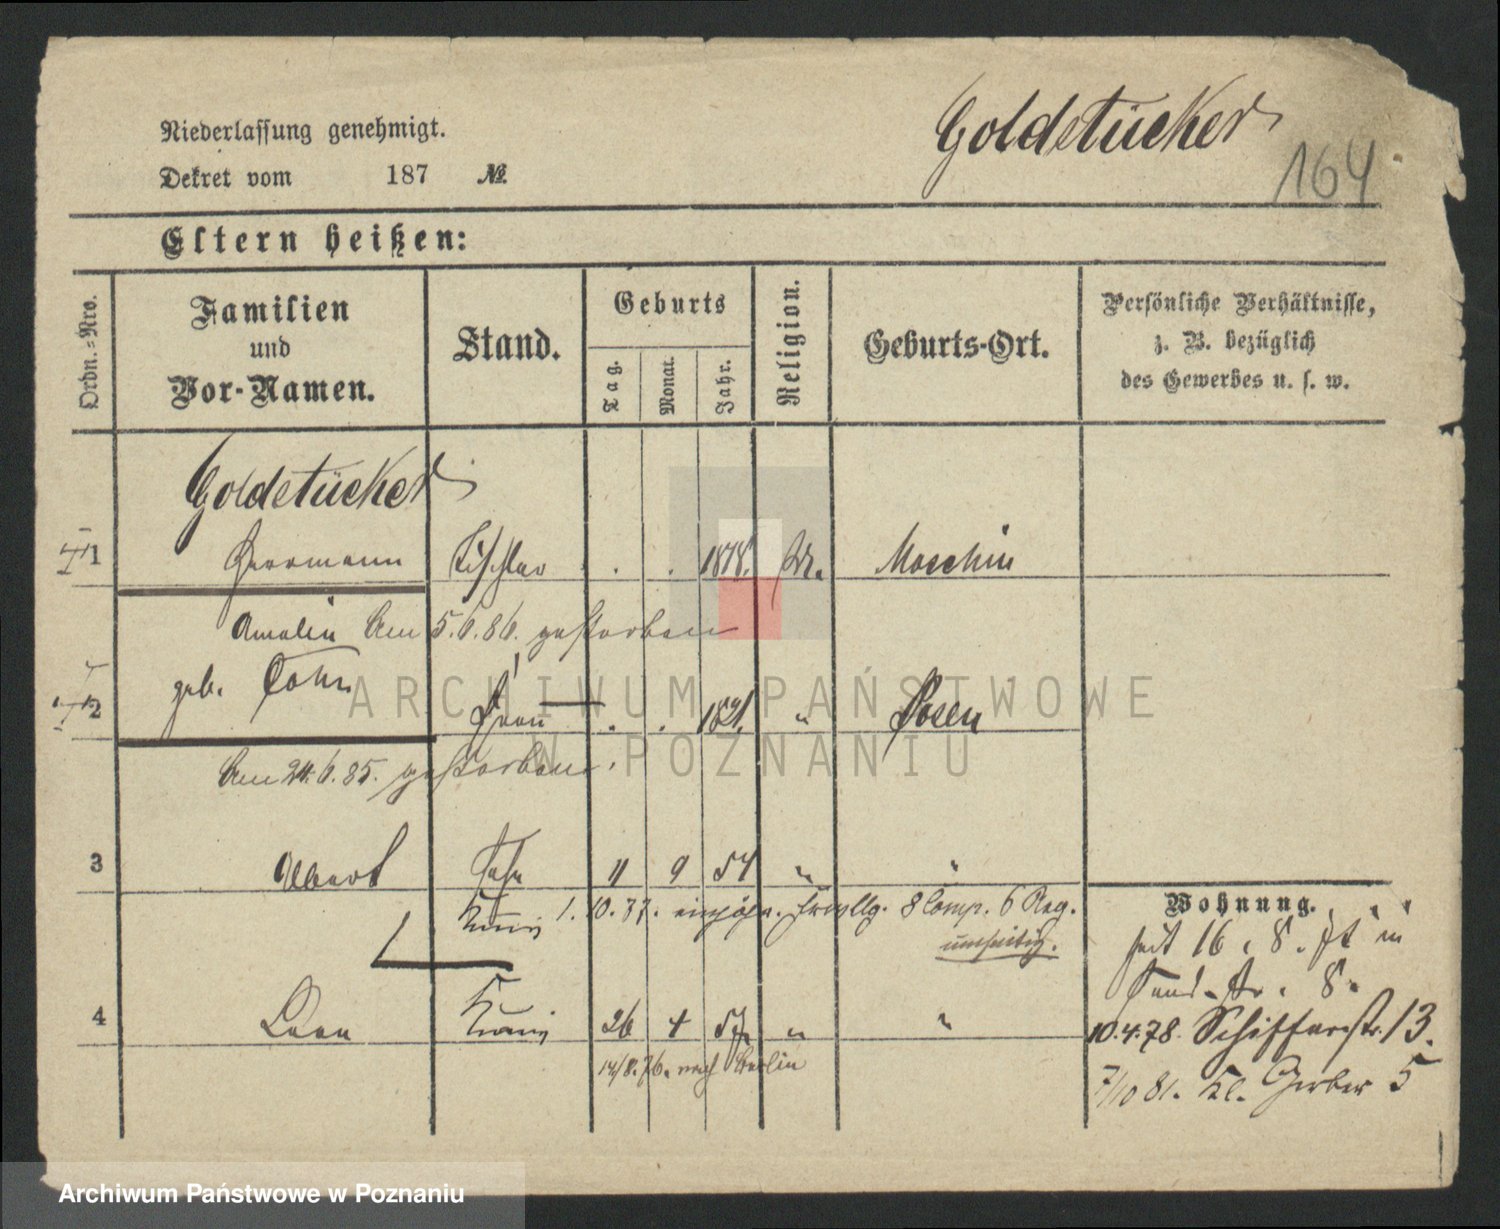 Goldstücker
164
Niederlassung genehmigt.
Dekret vom 187 №
Eltern heißen:
Ordn.=Nro.
Familien
und
Vor-Namen.
Stand.
Geburts
Tag.
Monat.
Jahr.
Religion.
Geburts-Ort.
Persönliche Verhältnisse,
z. B. bezüglich
des Gewerbes u. s. w.
Goldstücker
1 Herrmann Tischler . . 1818.
Amalie Am 5.6.86. gestorben
2 geb. Cohn Frau . . 1821. " Posen
Am 24.6.85. gestorben.
3 Albert Sohn 11 9 54 " "
1. 10. 77. einjähr. Freiwllg. 8 Comp. 6 Reg.
umseitig.
4 26 4 57 " "
14/8. 76. nach Berlin
Wohnung.
seit 16. 8. in
Sand-str. 8.
10.4.78. Schifferstr. 13.
7/10 81. Kl. Gerber 5
ARCHIWUM PAŃSTWOWE
W POZNANIU
Archiwum Państwowe w Poznaniu